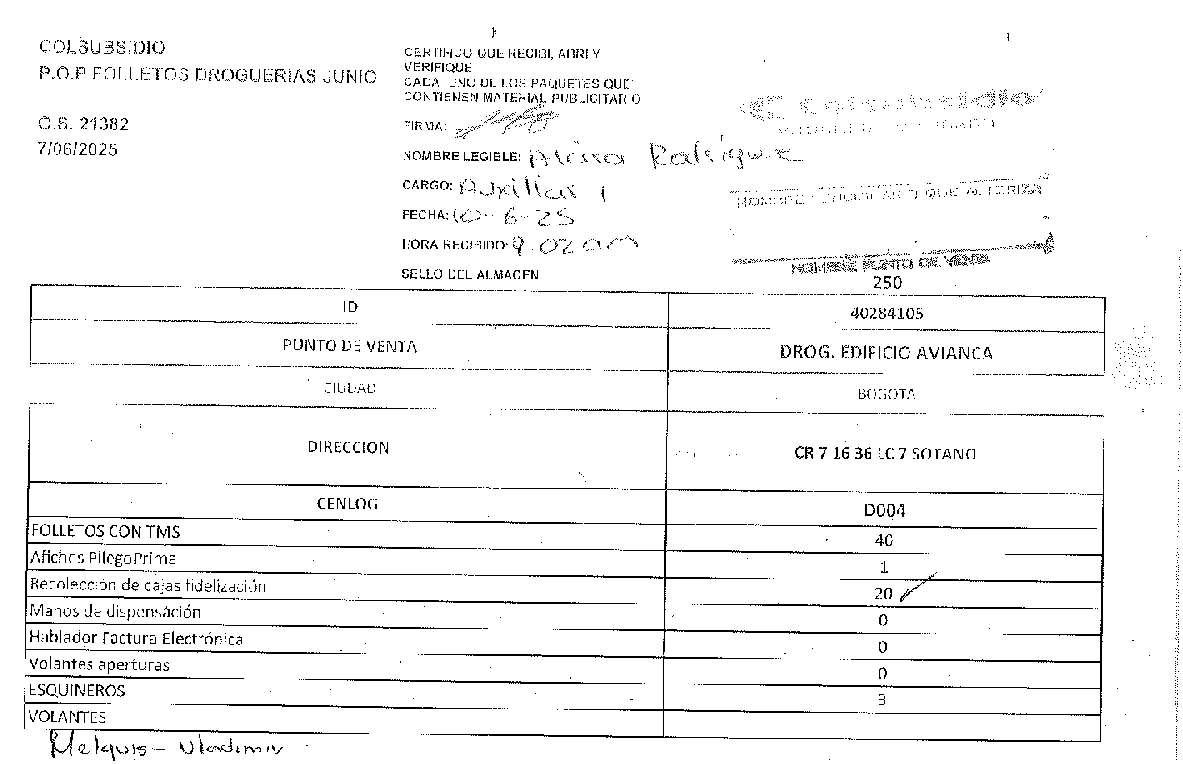 COLSUBSIDIO
P.O.P FOLLETOS DROGUERIAS JUNIO
O.S. 21382
7/06/2025
CERTIFICO QUE RECIBI, ABRI Y
VERIFIQUE
CADA UNO DE LOS PAQUETES QUE
CONTIENEN MATERIAL PUBLICITARIO
FIRMA:
NOMBRE LEGIBLE:
CARGO: Auxiliar 1
FECHA: 10-6-25
HORA RECIBIDO: 9:02 am
SELLO DEL ALMACEN
Colsubsidio
NOMBRE PUNTO DE VENTA
250
ID 40284105
PUNTO DE VENTA DROG. EDIFICIO AVIANCA
CIUDAD BOGOTA
DIRECCION CR 7 16 36 LC 7 SOTANO
CENLOG D004
FOLLETOS CON TMS 40
Afiches Pliego Prime 1
Recolección de cajas fidelización 20
Manos de dispensación 0
Hablador Factura Electrónica 0
Volantes aperturas 0
ESQUINEROS 3
VOLANTES
Melquis - Vladimir